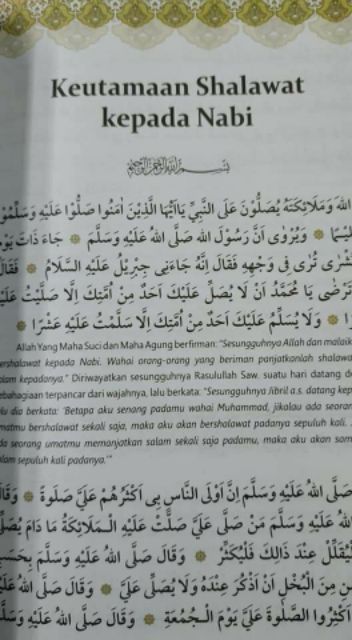 Keutamaan Shalawat
kepada Nabi
بِسْمِ اللهِ الرَّحْمٰنِ الرَّحِيْمِ
اللهَ وَمَلَائِكَتَهُ يُصَلُّوْنَ عَلَى النَّبِيِّ يٰاَيُّهَا الَّذِيْنَ اٰمَنُوْا صَلُّوْا عَلَيْهِ وَسَلِّمُوْا
وَيُرْوٰى اَنَّ رَسُوْلَ اللهِ صَلَّى اللهُ عَلَيْهِ وَسَلَّمَ ۞ جَاءَ ذَاتَ
تُرٰى فِى وَجْهِهِ فَقَالَ اِنَّهُ جَاءَنِى جِبْرِيْلُ عَلَيْهِ السَّلَامُ ۞ فَقَالَ
تَرْضٰى يَا مُحَمَّدُ اَنْ لَا يُصَلِّ عَلَيْكَ اَحَدٌ مِنْ اُمَّتِكَ اِلَّا صَلَّيْتُ
۞ وَلَا يُسَلِّمُ عَلَيْكَ اَحَدٌ مِنْ اُمَّتِكَ اِلَّا سَلَّمْتُ عَلَيْهِ عَشْرًا ۞
Allah Yang Maha Suci dan Maha Agung berfirman: "Sesungguhnya Allah dan malaik
ershalawat kepada Nabi. Wahai orang-orang yang beriman panjatkanlah shalawa
lam kepadanya." Diriwayatkan sesungguhnya Rasulullah Saw. suatu hari datang d
ebahagiaan terpancar dari wajahnya, lalu berkata: "Sesungguhnya Jibril a.s. datang kep
lu dia berkata: 'Betapa aku senang padamu wahai Muhammad, jikalau ada seoran
matmu bershalawat sekali saja, maka aku akan bershalawat padanya sepuluh kali.
da seorang umatmu memanjatkan salam sekali saja padamu, maka aku akan sam
lam sepuluh kali padanya.'"
صَلَّى اللهُ عَلَيْهِ وَسَلَّمَ اِنَّ اَوْلَى النَّاسِ بِى اَكْثَرُهُمْ عَلَيَّ صَلَوةً ۞
اللهُ عَلَيْهِ وَسَلَّمَ مَنْ صَلَّى عَلَيَّ صَلَّتْ عَلَيْهِ الْمَلَائِكَةُ مَا دَامَ
عِنْدَ ذَالِكَ فَلْيُكَثِّرْ ۞ وَقَالَ صَلَّى اللهُ عَلَيْهِ وَسَلَّمَ
مِنَ الْبُخْلِ اَنْ اُذْكَرَ عِنْدَهُ وَلَا يُصَلِّى عَلَيَّ ۞ وَقَالَ صَلَّى اللهُ
اَكْثِرُوا الصَّلَوةَ عَلَيَّ يَوْمَ الْجُمُعَةِ ۞ وَقَالَ صَلَّى اللهُ عَلَيْهِ